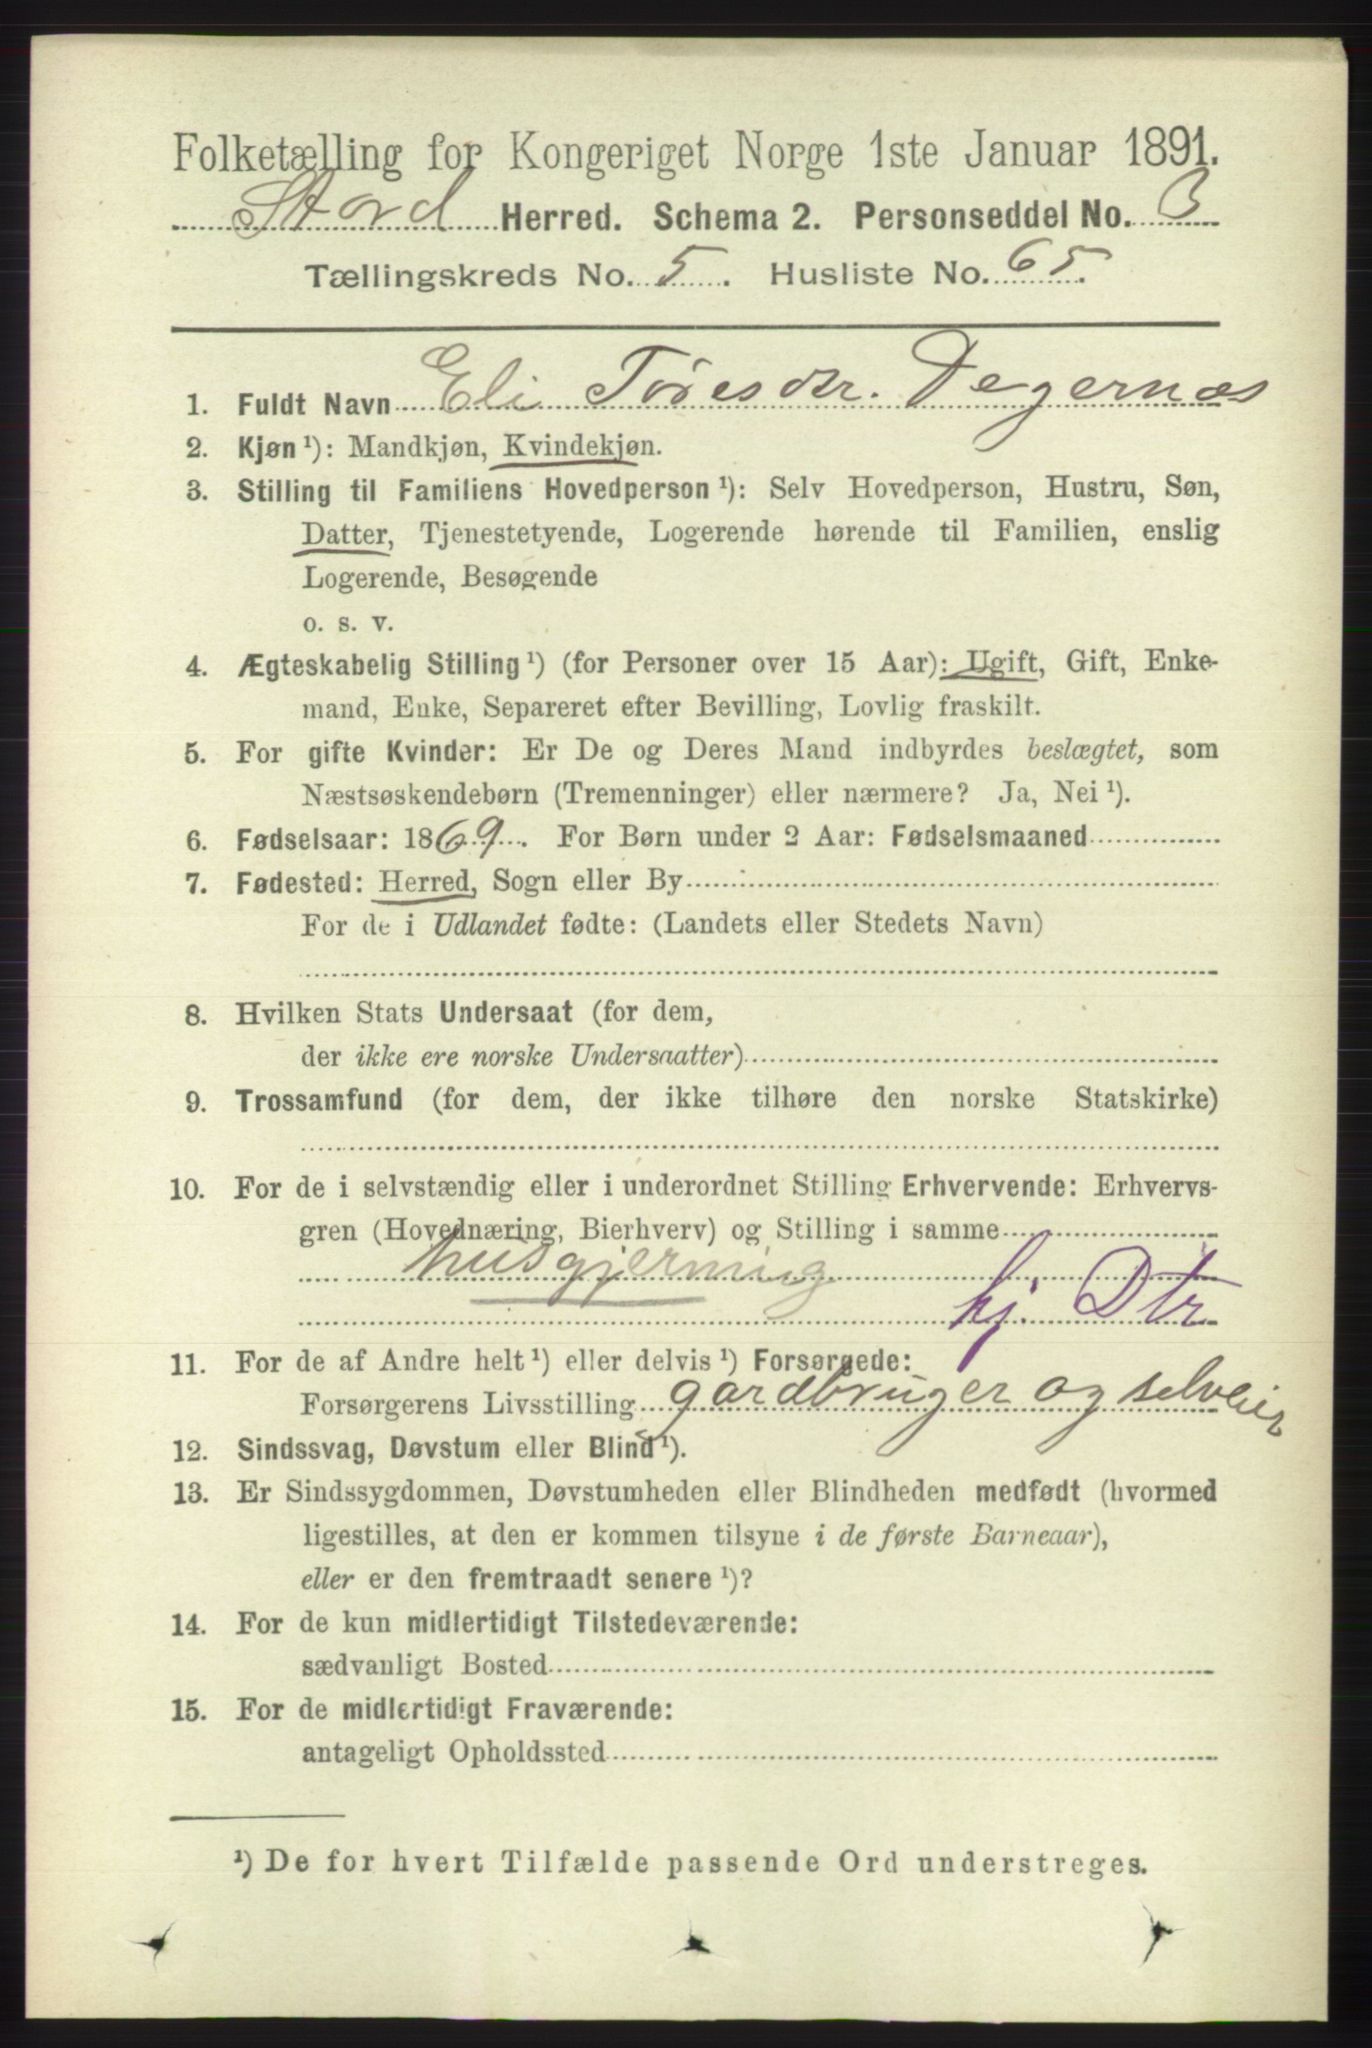 Folketælling for Kongeriget Norge 1ste Januar 1891.
Stord Herred. Schema 2. Personseddel No. 3
Tællingskreds No. 5. Husliste No. 65.
1. Fuldt Navn Eli Toresdtr. Degernæs
2. Kjøn ¹): Mandkjøn, Kvindekjøn.
3. Stilling til Familiens Hovedperson ¹): Selv Hovedperson, Hustru, Søn,
Datter, Tjenestetyende, Logerende hørende til Familien, enslig
Logerende, Besøgende
o. s. v.
4. Ægteskabelig Stilling ¹) (for Personer over 15 Aar): Ugift, Gift, Enke-
mand, Enke, Separeret efter Bevilling, Lovlig fraskilt.
5. For gifte Kvinder: Er De og Deres Mand indbyrdes beslægtet, som
Næstsøskendebørn (Tremenninger) eller nærmere? Ja, Nei ¹).
6. Fødselsaar: 1869. For Børn under 2 Aar: Fødselsmaaned
7. Fødested: Herred, Sogn eller By
For de i Udlandet fødte: (Landets eller Stedets Navn)
8. Hvilken Stats Undersaat (for dem,
der ikke ere norske Undersaatter)
9. Trossamfund (for dem, der ikke tilhøre den norske Statskirke)
10. For de i selvstændig eller i underordnet Stilling Erhvervende: Erhvervs-
gren (Hovednæring, Bierhverv) og Stilling i samme
husgjerning
hj. Dtr
11. For de af Andre helt ¹) eller delvis ¹) Forsørgede:
Forsørgerens Livsstilling gardbruger og selveier
12. Sindssvag, Døvstum eller Blind ¹).
13. Er Sindssygdommen, Døvstumheden eller Blindheden medfødt (hvormed
ligestilles, at den er kommen tilsyne i de første Barneaar),
eller er den fremtraadt senere ¹)?
14. For de kun midlertidigt Tilstedeværende:
sædvanligt Bosted
15. For de midlertidigt Fraværende:
antageligt Opholdssted
¹) De for hvert Tilfælde passende Ord understreges.